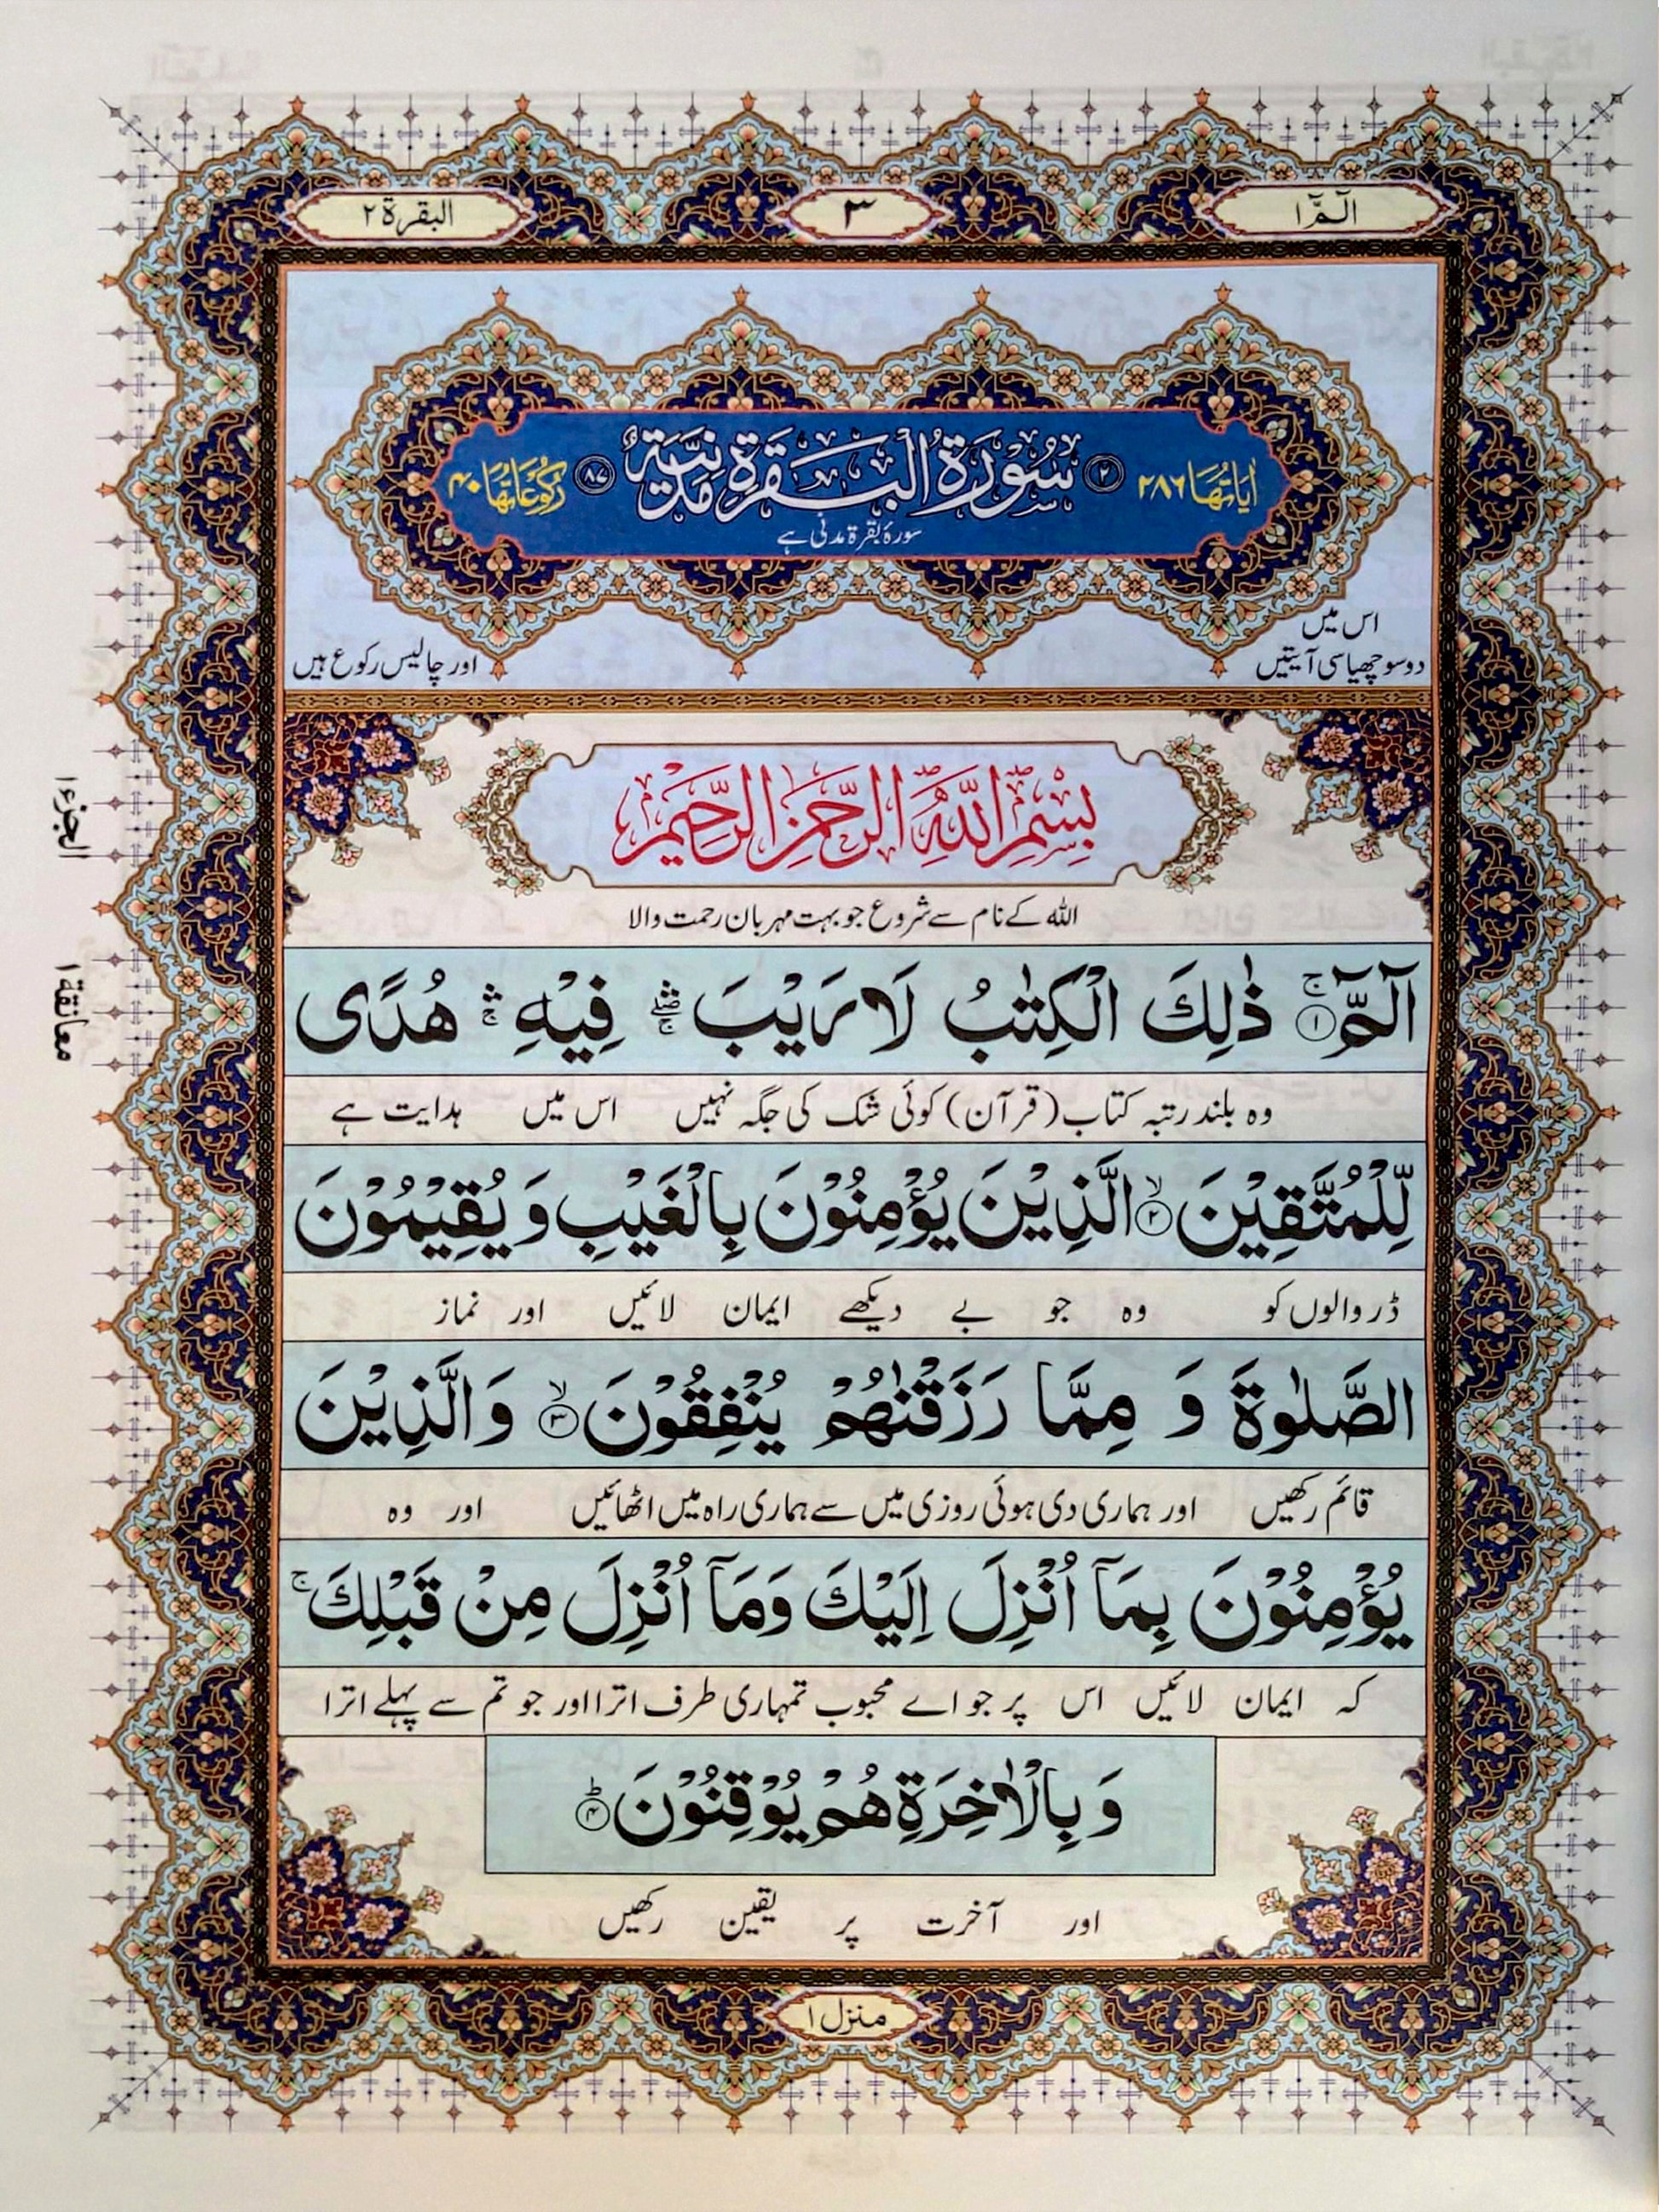 الٓمّٓ ۱
۳
البقرة ۲
اٰیَاتُهَا ۲۸۶
۲ سُوْرَةُ الْبَقَرَةِ مَدَنِیَّةٌ ۸۷
رُكُوْعَاتُهَا ۴۰
سورۂ بقرۃ مدنی ہے
اس میں
دو سو چھیاسی آیتیں
اور چالیس رکوع ہیں
بِسْمِ اللّٰهِ الرَّحْمٰنِ الرَّحِیْمِ
اللہ کے نام سے شروع جو بہت مہربان رحمت والا
الٓمّٓ ۚ ۱ ذٰلِكَ الْكِتٰبُ لَا رَیْبَ ۛۖۚ فِیْهِ ۛۚ هُدًی
وہ بلند رتبہ کتاب (قرآن) کوئی شک کی جگہ نہیں اس میں ہدایت ہے
لِّلْمُتَّقِیْنَ ۙ ۲ الَّذِیْنَ یُؤْمِنُوْنَ بِالْغَیْبِ وَ یُقِیْمُوْنَ
ڈر والوں کو وہ جو بے دیکھے ایمان لائیں اور نماز
الصَّلٰوةَ وَ مِمَّا رَزَقْنٰهُمْ یُنْفِقُوْنَ ۙ ۳ وَ الَّذِیْنَ
قائم رکھیں اور ہماری دی ہوئی روزی میں سے ہماری راہ میں اٹھائیں اور وہ
یُؤْمِنُوْنَ بِمَاۤ اُنْزِلَ اِلَیْكَ وَ مَاۤ اُنْزِلَ مِنْ قَبْلِكَ ۚ
کہ ایمان لائیں اس پر جو اے محبوب تمہاری طرف اترا اور جو تم سے پہلے اترا
وَ بِالْاٰخِرَةِ هُمْ یُوْقِنُوْنَ ؕ ۴
اور آخرت پر یقین رکھیں
منزل ۱
الجزء ۱
معانقة ۱